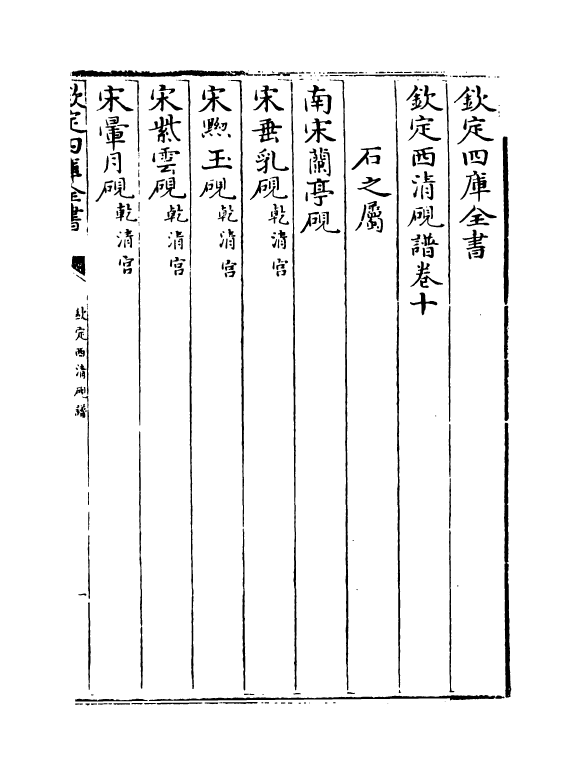 欽定四庫全書
欽定西清硯譜卷十
石之屬
南宋蘭亭硯
宋垂乳硯乾清宮
宋黟玉硯乾清宮
宋紫雲硯乾清宮
宋暈月硯乾清宮
欽定四庫全書
欽定西清硯譜
一